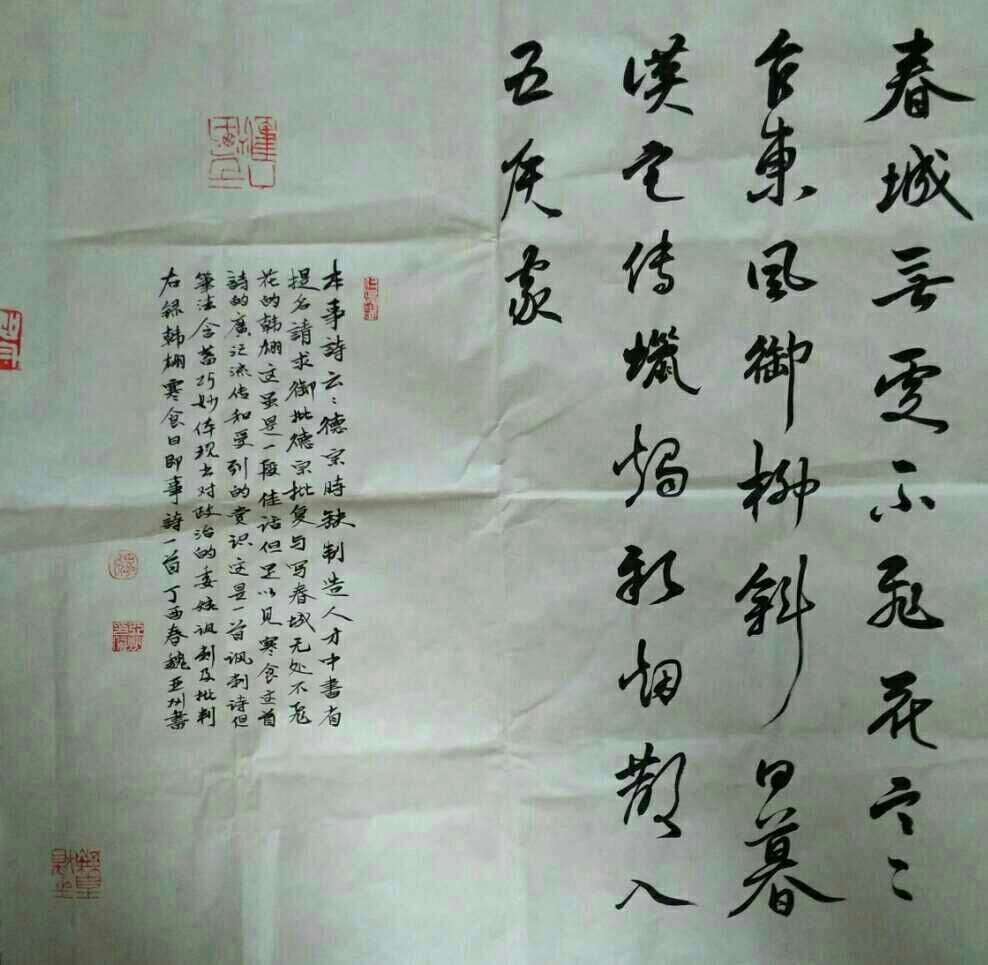 春城無處不飛花寒
食東風御柳斜日暮
漢宮傳蠟燭輕烟散入
五侯家
本事詩云：德宗時缺制造人才中書省
提名請求御批德宗批复与写春城无处不飛
花的韩翃这虽是一段佳话但足以见寒食这首
詩的廣泛流传和受到的赏识这是一首讽刺诗但
筆法含蓄巧妙体现出对政治的委婉讽刺及批判
右録韩翃寒食日即事詩一首丁酉春魏亚州書